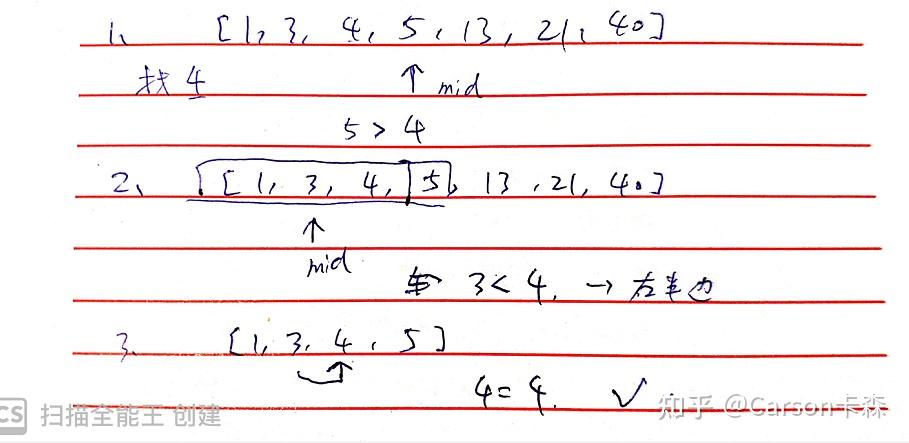 1、 [1, 3, 4, 5, 13, 21, 40]
找 4 ↑ mid
5 > 4
2、 [1, 3, 4, 5, 13, 21, 40]
↑
mid
3 < 4, → 右半边
3、 [1, 3, 4, 5]
4 = 4. ✓
CS 扫描全能王 创建
知乎 @Carson卡森